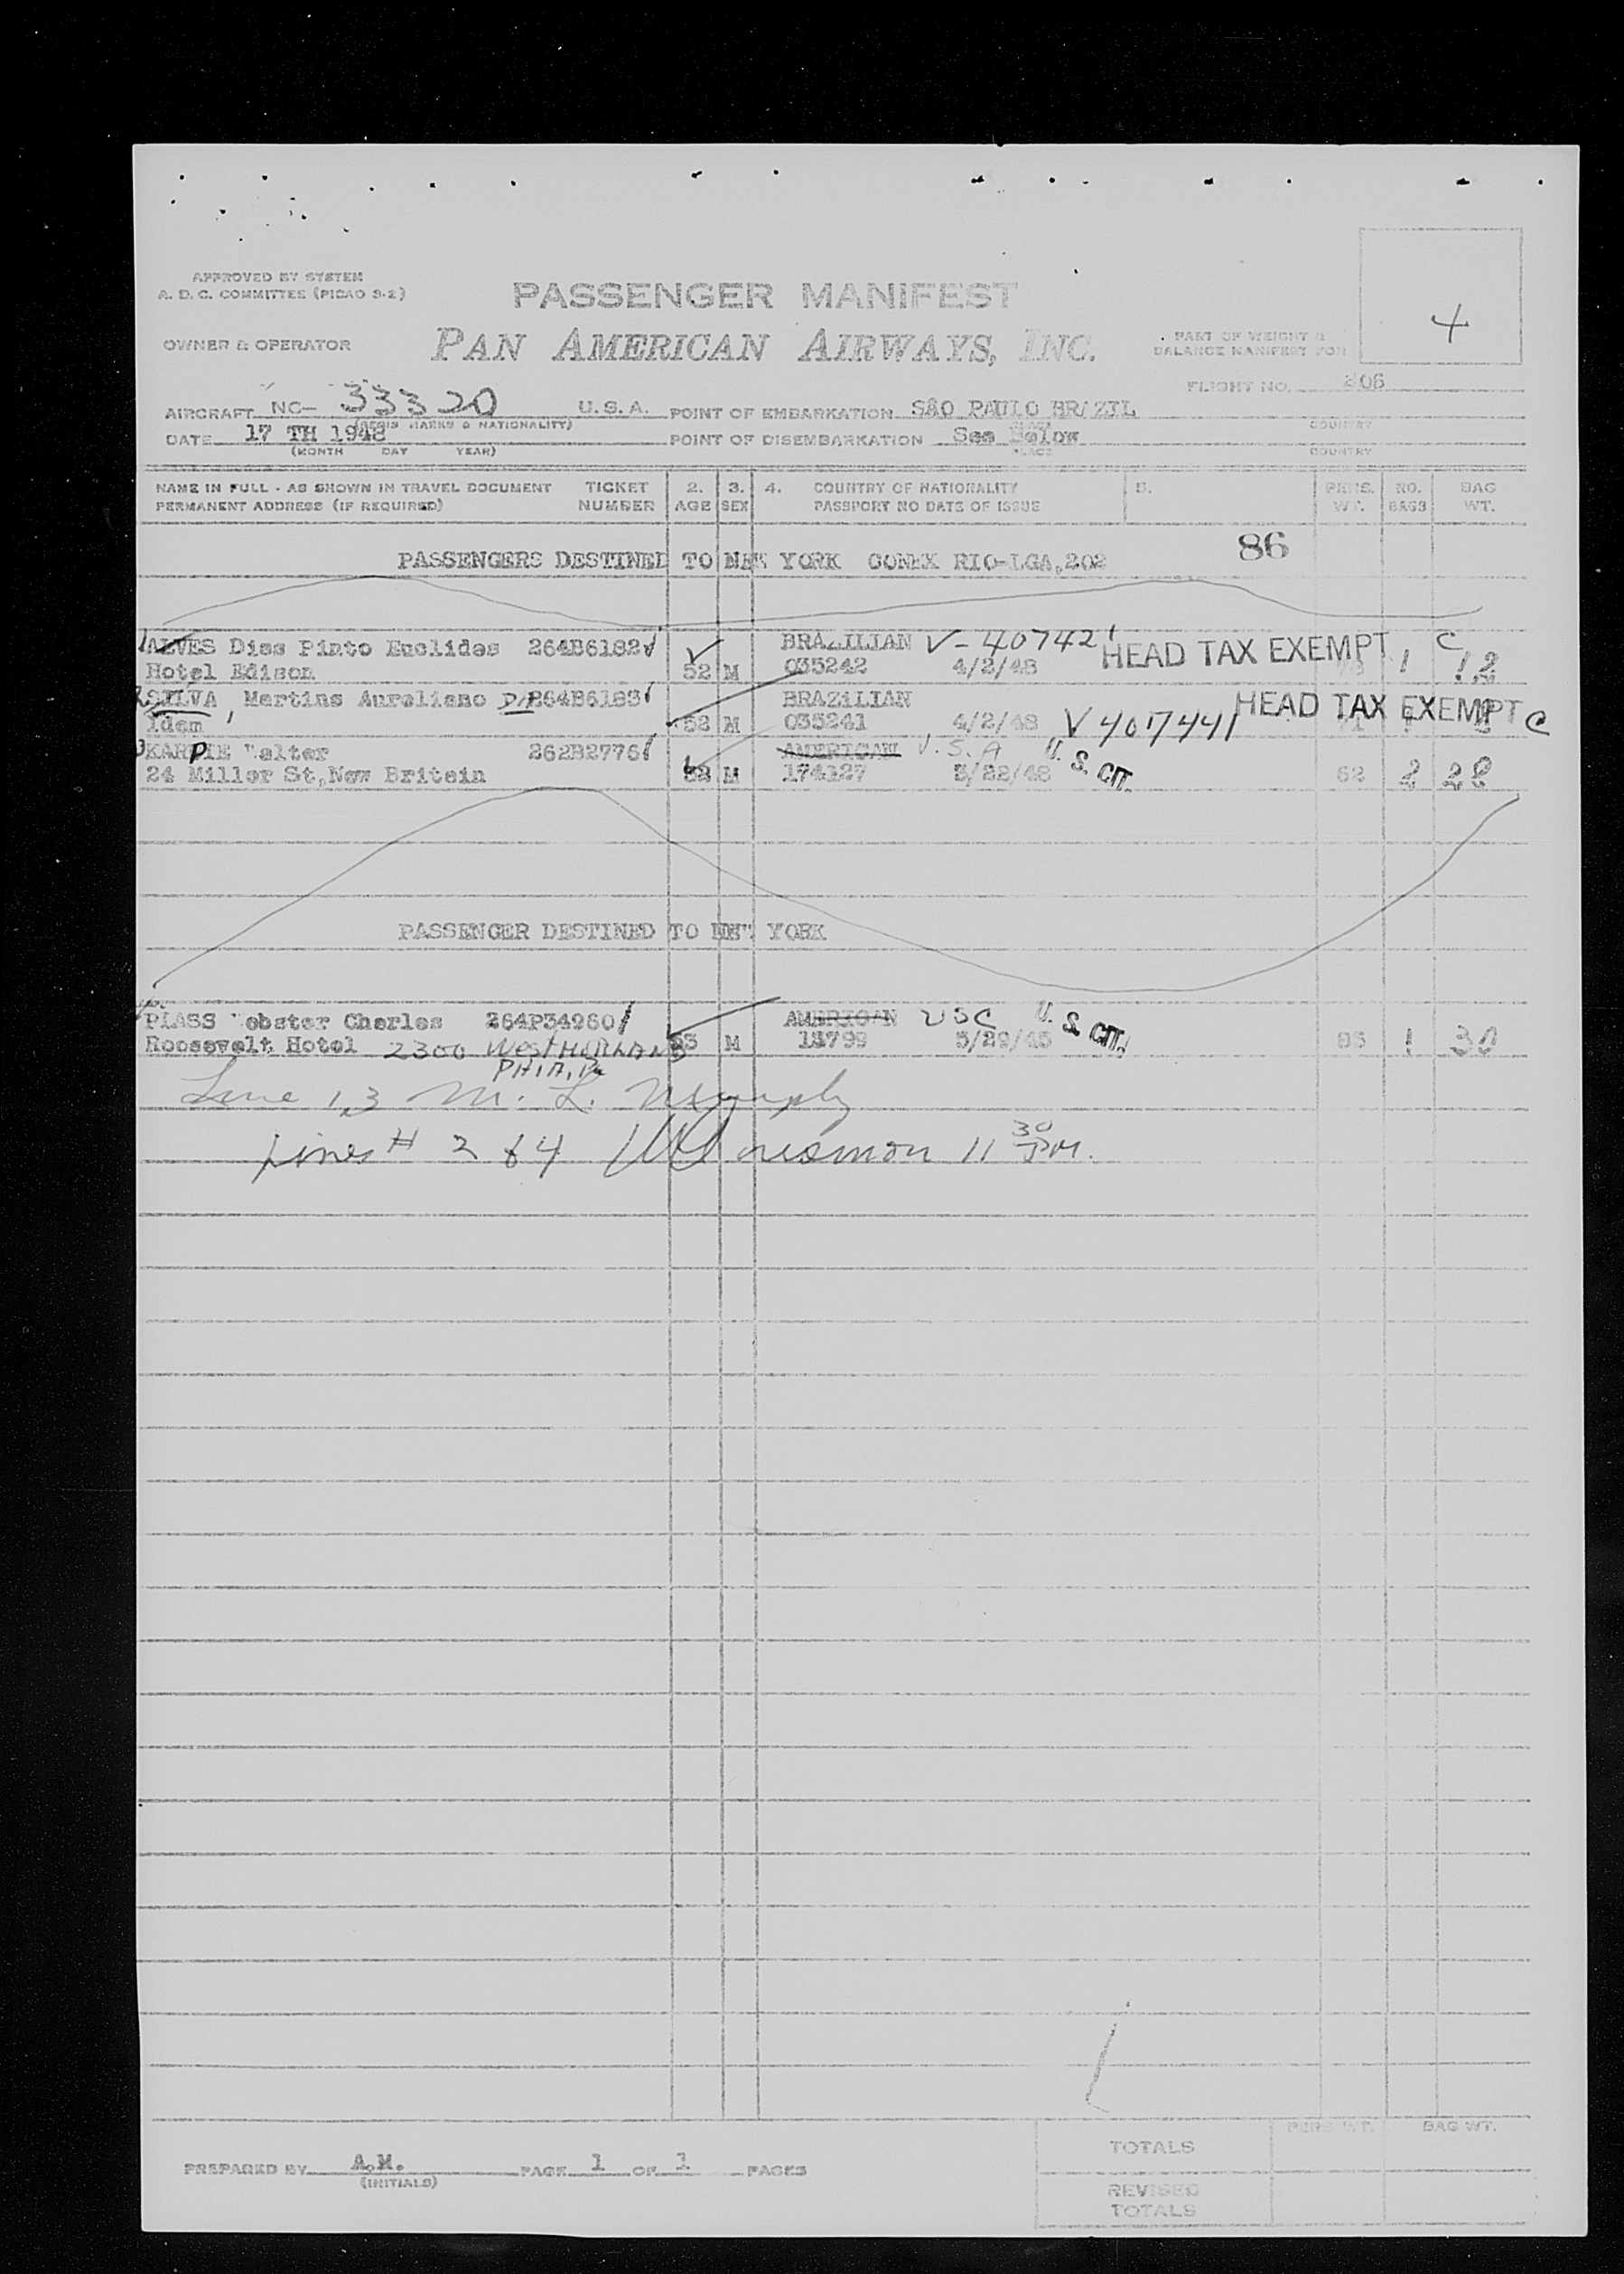 APPROVED BY SYSTEM
A. D. C. COMMITTEE (PICAO 9-2)
PASSENGER MANIFEST
4
OWNER & OPERATOR
PAN AMERICAN AIRWAYS, INC.
PART OF WEIGHT &
BALANCE MANIFEST FOR
FLIGHT NO. 206
AIRCRAFT NC- 33320 U.S.A. POINT OF EMBARKATION SÃO PAULO BRAZIL
(REGIS MARKS & NATIONALITY) COUNTRY
DATE 17 TH 1948 POINT OF DISEMBARKATION See Below
(MONTH DAY YEAR) PLACE COUNTRY
NAME IN FULL - AS SHOWN IN TRAVEL DOCUMENT TICKET 2. 3. 4. COUNTRY OF NATIONALITY 5. PERS. NO. BAG
PERMANENT ADDRESS (IF REQUIRED) NUMBER AGE SEX PASSPORT NO DATE OF ISSUE WT. BAGS WT.
86
PASSENGERS DESTINED TO NEW YORK CONEX RIO-LGA,202
ALVES Dias Pinto Euclides 264B6182 BRAZILIAN V-407421 HEAD TAX EXEMPT 1 C
Hotel Edison 52 M 035242 4/2/48 12
SILVA, Martins Aureliano 264B6183 BRAZILIAN HEAD TAX EXEMPT C
Idem 52 M 035241 4/2/48 V407441
KARPIE Walter 262B2776 AMERICAN U.S.A U. S. CIT.
24 Miller St,New Britain M 174127 62 2 28
PASSENGER DESTINED TO NEW YORK
PLASS Webster Charles 264P34960 AMERICAN USC U. S. CIT.
Roosevelt Hotel 2300 WestMORLAND M 1 30
PHIA, Pa
Line 1,3 M. L. Murphy
Lines # 2 & 4 11 30 PM.
PERS WT. BAG WT.
TOTALS
PREPARED BY A.M. PAGE 1 OF 1 PAGES
(INITIALS)
REVISED
TOTALS